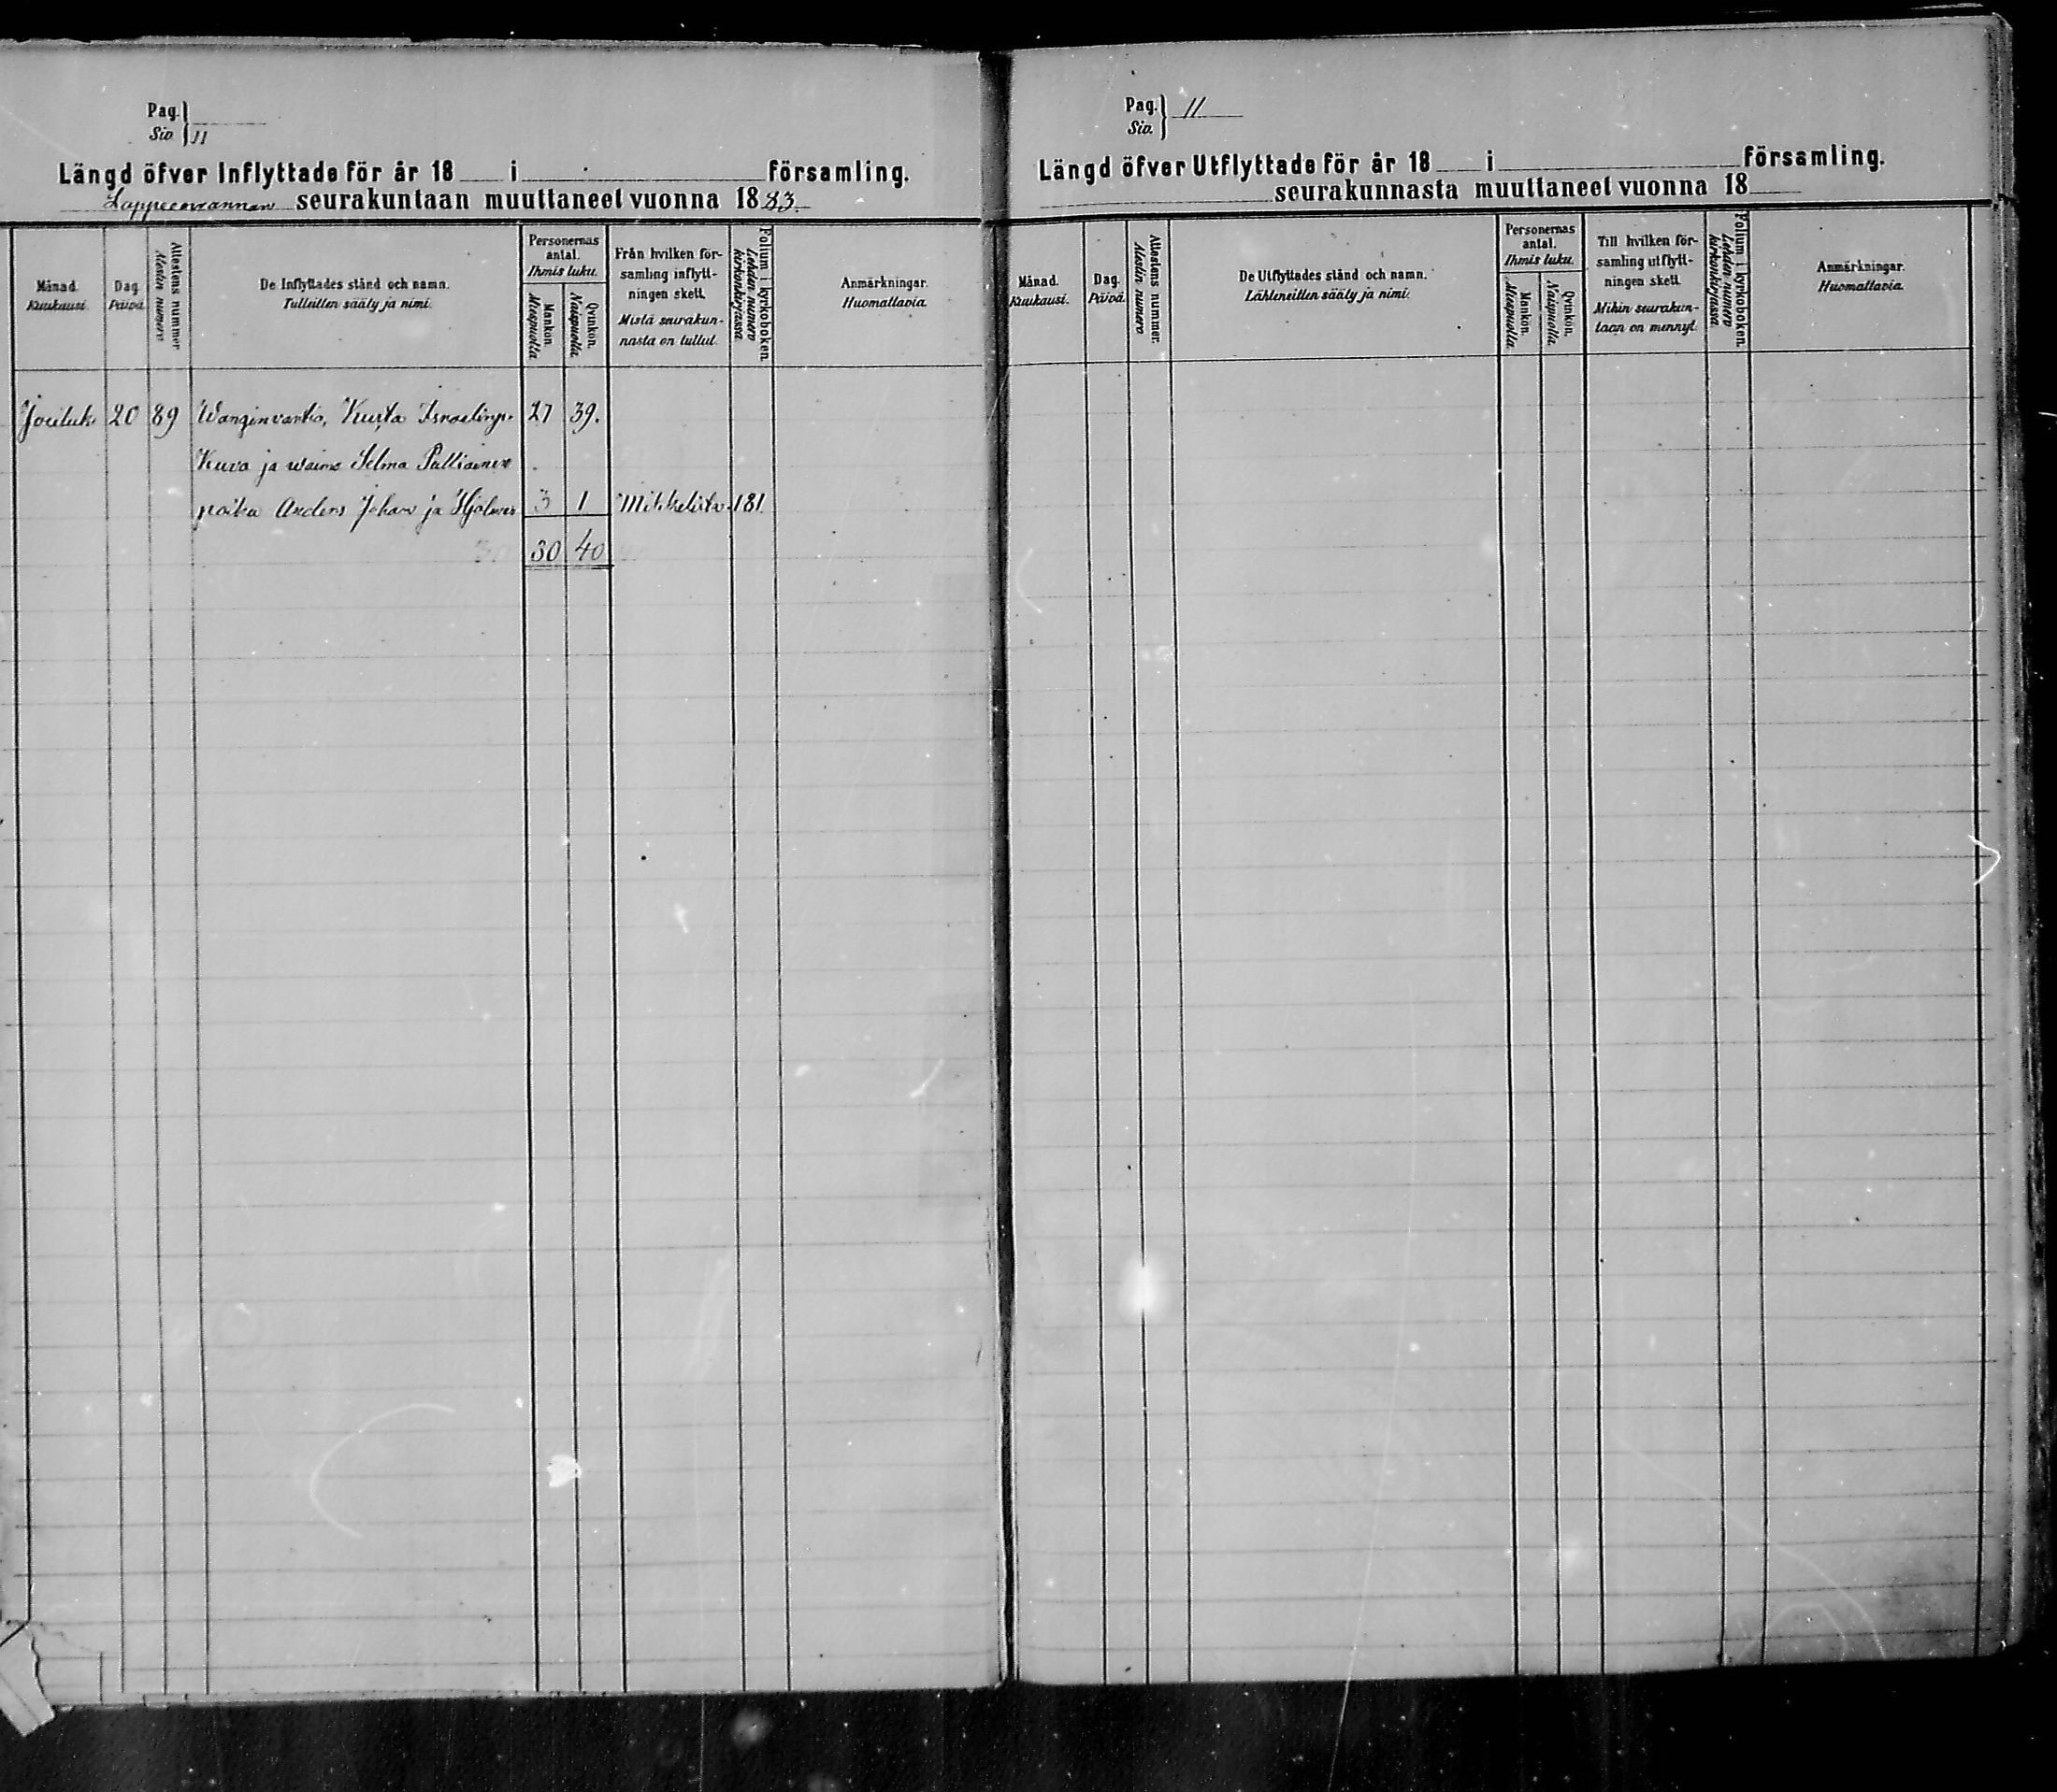 Pag.
Siv. 11
Längd öfver Inflyttade för år 18 i församling.
Lappeenrannan seurakuntaan muuttaneet vuonna 1883.
Månad.
Kuukausi.
Dag.
Päivä.
Attestens nummer.
Atestin numero
De Inflyttades stånd och namn.
Tulleitten sääty ja nimi.
Personernas
antal.
Ihmis luku.
Mankön.
Miespuolia.
Qvinkön.
Naispuolia.
Från hvilken för-
samling inflytt-
ningen skett.
Mistä seurakun-
nasta on tullut.
Folium i kyrkoboken.
Lehden numero
kirkonkirjassa
Anmärkningar.
Huomattavia.
Jouluk. 20 89 Wanginvartio, Kusta Israelinp. 27 39.
Kuva ja waimo Selma Pulliainen
poika Anders Johan ja Hjalmar 3 1 Mikkelista 181
30 40
Pag. 11
Siv.
Längd öfver Utflyttade för år 18 i församling.
seurakunnasta muuttaneet vuonna 18
Månad.
Kuukausi.
Dag.
Päivä.
Attestens nummer.
Atestin numero
De Utflyttades stånd och namn.
Lähteneitten sääty ja nimi.
Personernas
antal.
Ihmis luku.
Mankön.
Miespuolia.
Qvinkön.
Naispuolia.
Till hvilken för-
samling utflytt-
ningen skett.
Mihin seurakun-
taan on mennyt.
Folium i kyrkoboken.
Lehden numero
kirkonkirjassa
Anmärkningar.
Huomattavia.